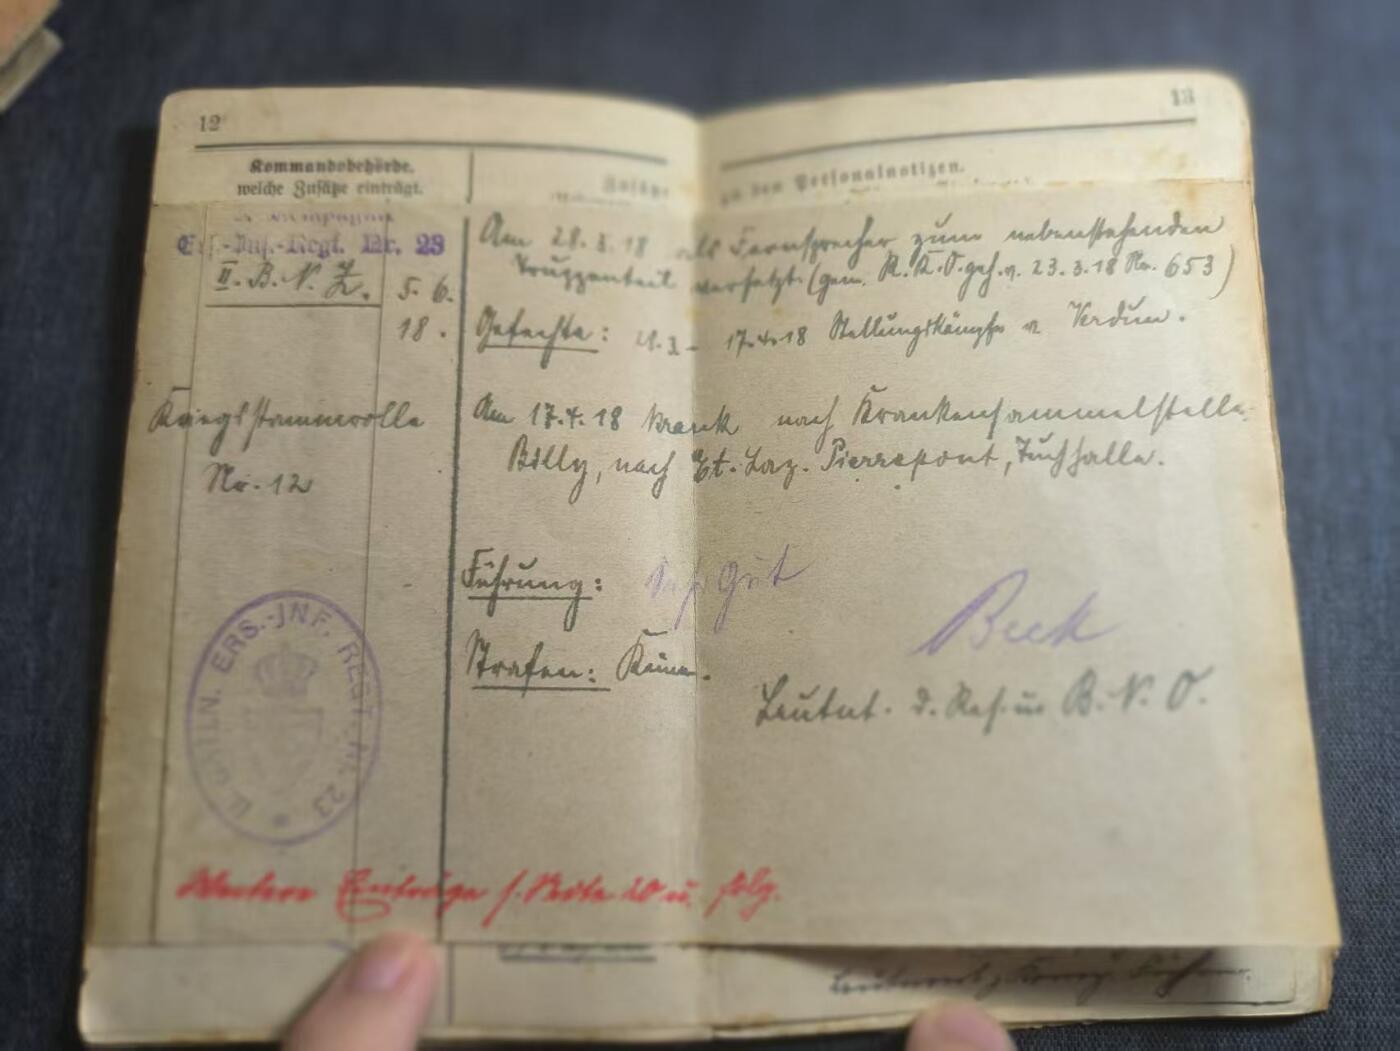 12
13
Kommandobehörde,
welche Zusätze einträgt.
Zusätze zu den Personalnotizen.
Kompagnie
Ers.-Inf.-Regt. Nr. 23
II. B. N. Z.
5. 6.
18.
Am 28.3.18 als Fernsprecher zum nebenstehenden
Truppenteil versetzt. (gem. R.K.O. geh. v. 23.3.18 No. 653)
Gefechte: - 17.4.18 Stellungskämpfe v Verdun.
Kriegsstammrolle
Nr. 12
Am 17.4.18 krank nach Krankensammelstelle
Billy, nach Et. Laz. Pierrepont, Tuchhalle.
Führung: Sehr Gut
Strafen: Keine.
Beck
Leutnt. d. Res. u B. N. O.
ERS.-INF. REGT. Nr. 23
Weitere Einträge s. Seite 20 u. folg.